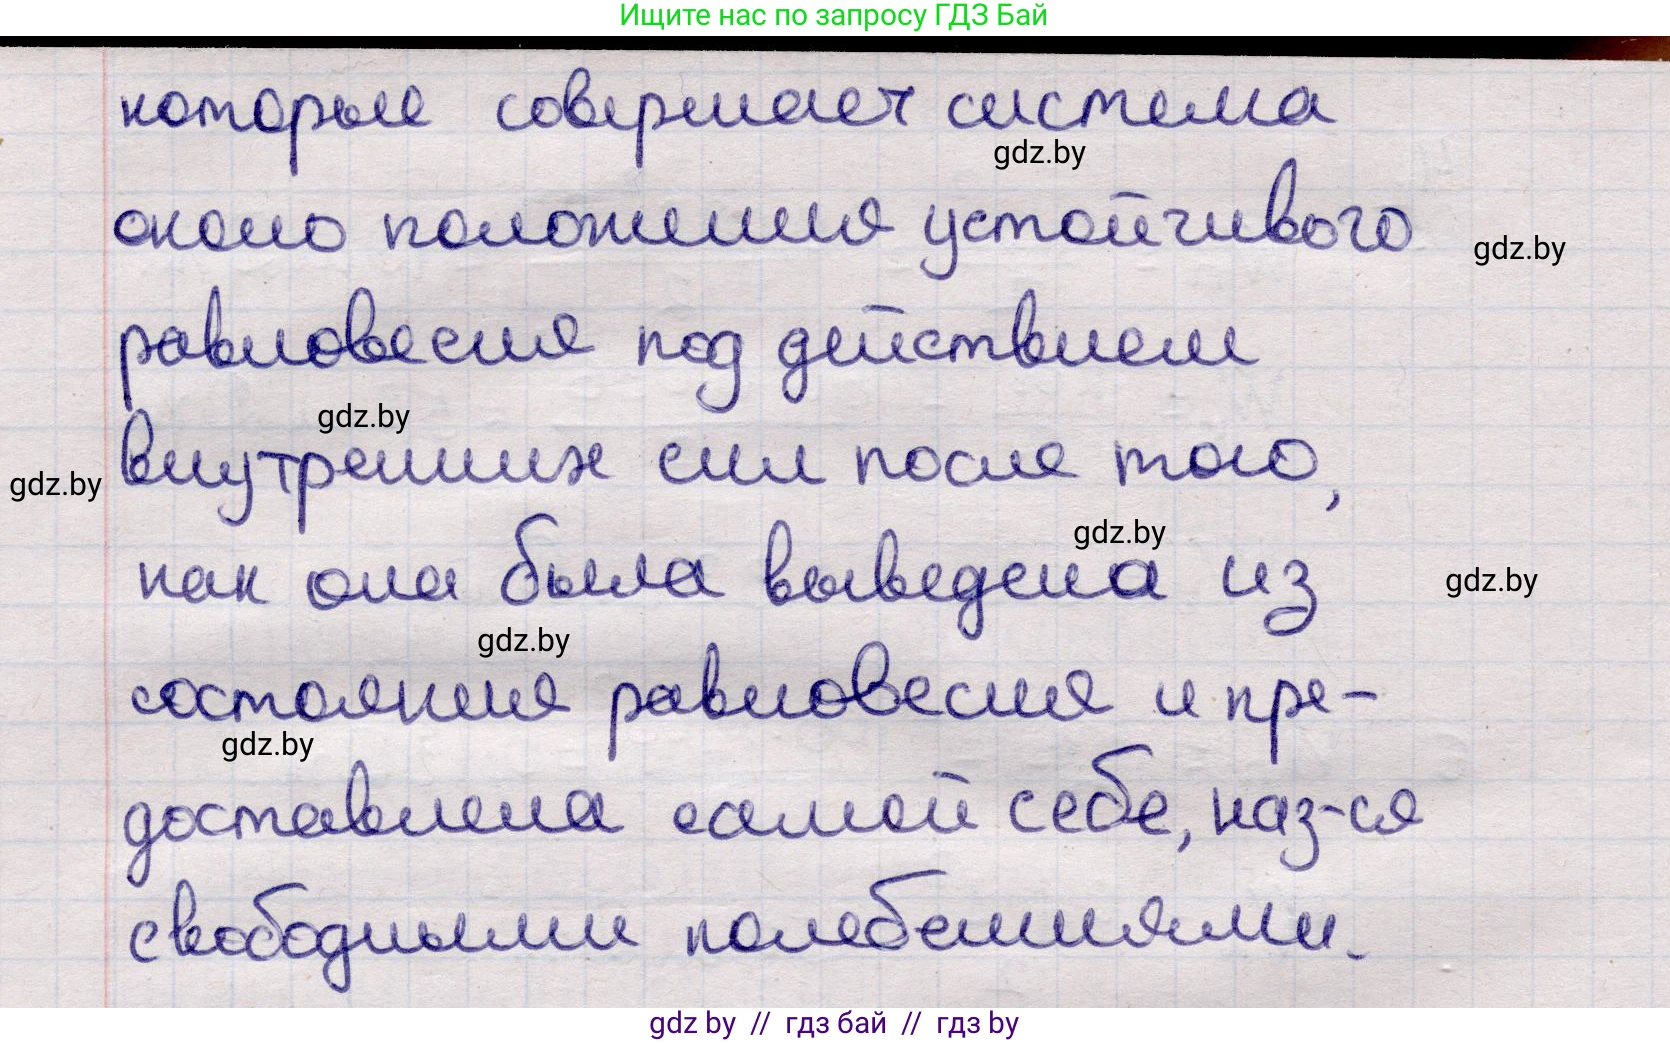 Ищите нас по запросу ГДЗ Бай
которые совершает система
gdz.by
около положения устойчивого
gdz.by
равновесия под действием
gdz.by
внутренних сил после того,
gdz.by
gdz.by
как она была выведена из
gdz.by
gdz.by
состояния равновесия и пре-
gdz.by
доставлена самой себе, наз-ся
свободными колебаниями.
gdz by // гдз бай // гдз by